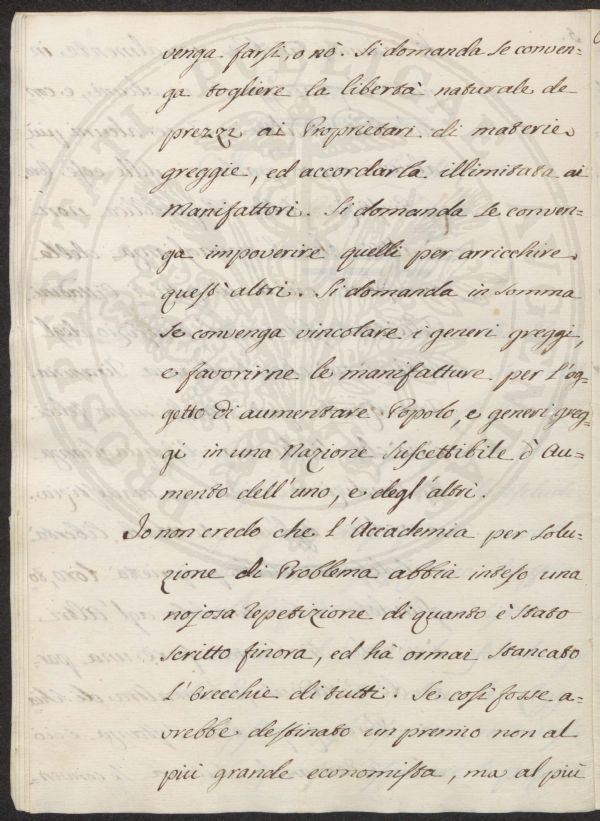 venga farsi, o nò. Si domanda se conven=
ga togliere la libertà naturale de
prezzi ai Proprietari di materie
greggie, ed accordarla illimitata ai
Manifattori. Si domanda se conven=
ga impoverire quelli per arricchire
quest'altri. Si domanda in somma
se convenga vincolare i generi greggi,
e favorirne le manifatture per l'og=
getto di aumentare Popolo, e generi greg=
gi in una Nazione suscettibile d'au=
mento dell'uno, e degl'altri.
Io non credo che l'Accademia per solu=
zione di Problema abbia inteso una
nojosa repetizione di quanto è stato
scritto finora, ed hà ormai stancato
l'orecchie di tutti. Se così fosse a=
vrebbe destinato un premio non al
più grande economista, ma al più